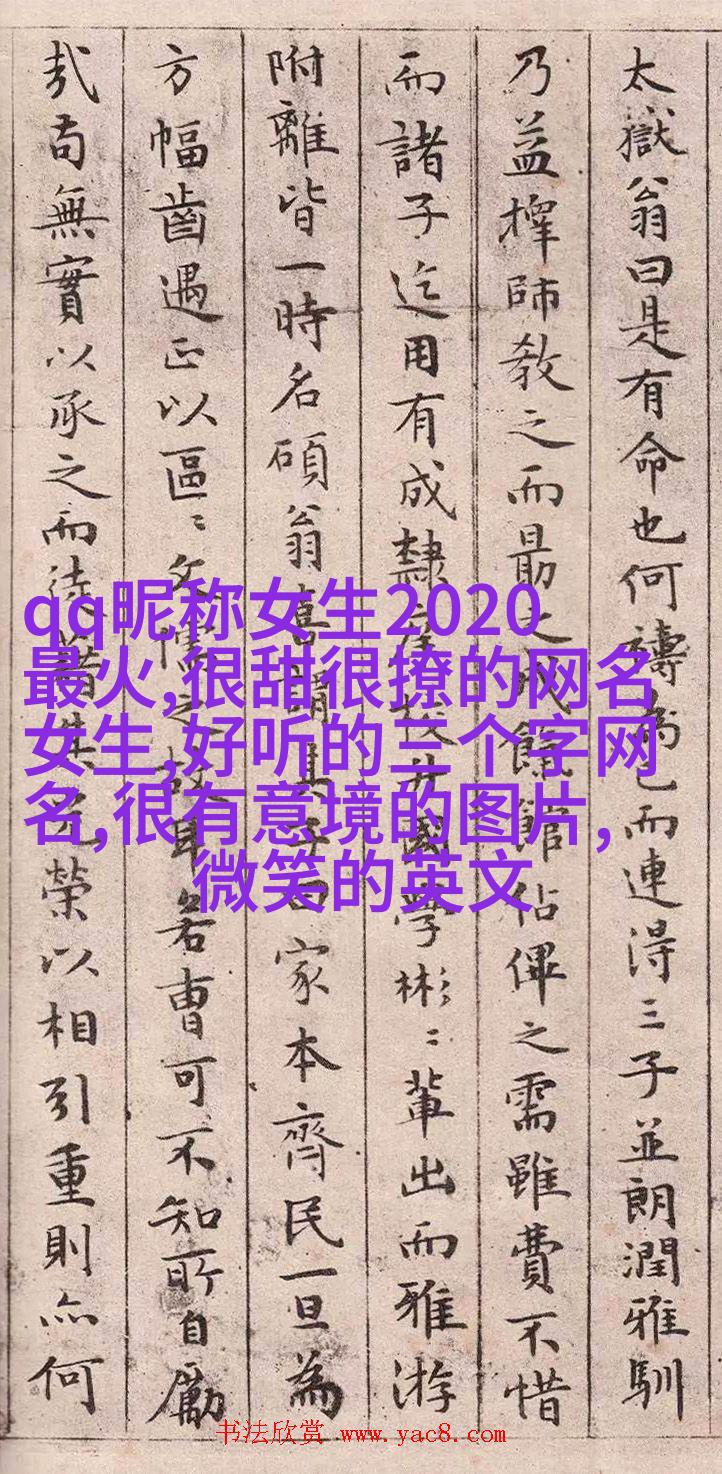 太嶽翁曰是有命也何禱為已而連得三子並朗潤雅馴
乃益擇師教之而最之成餼館佔僤之需雖費不惜
而諸子迄用有成隸庠校升國學彬〻輩出而雅游
附離皆一時名碩翁喜謂其子曰家本齊民一旦為
方幅齒遇正以區〻文儒之故耳若曹可不知所自勵
哉苟無實以承之而徒藉其光榮以相引重則亦何
qq昵称女生2020
最火,很甜很撩的网名
女生,好听的三个字网
名,很有意境的图片,
微笑的英文
书法欣赏 www.yac8.com